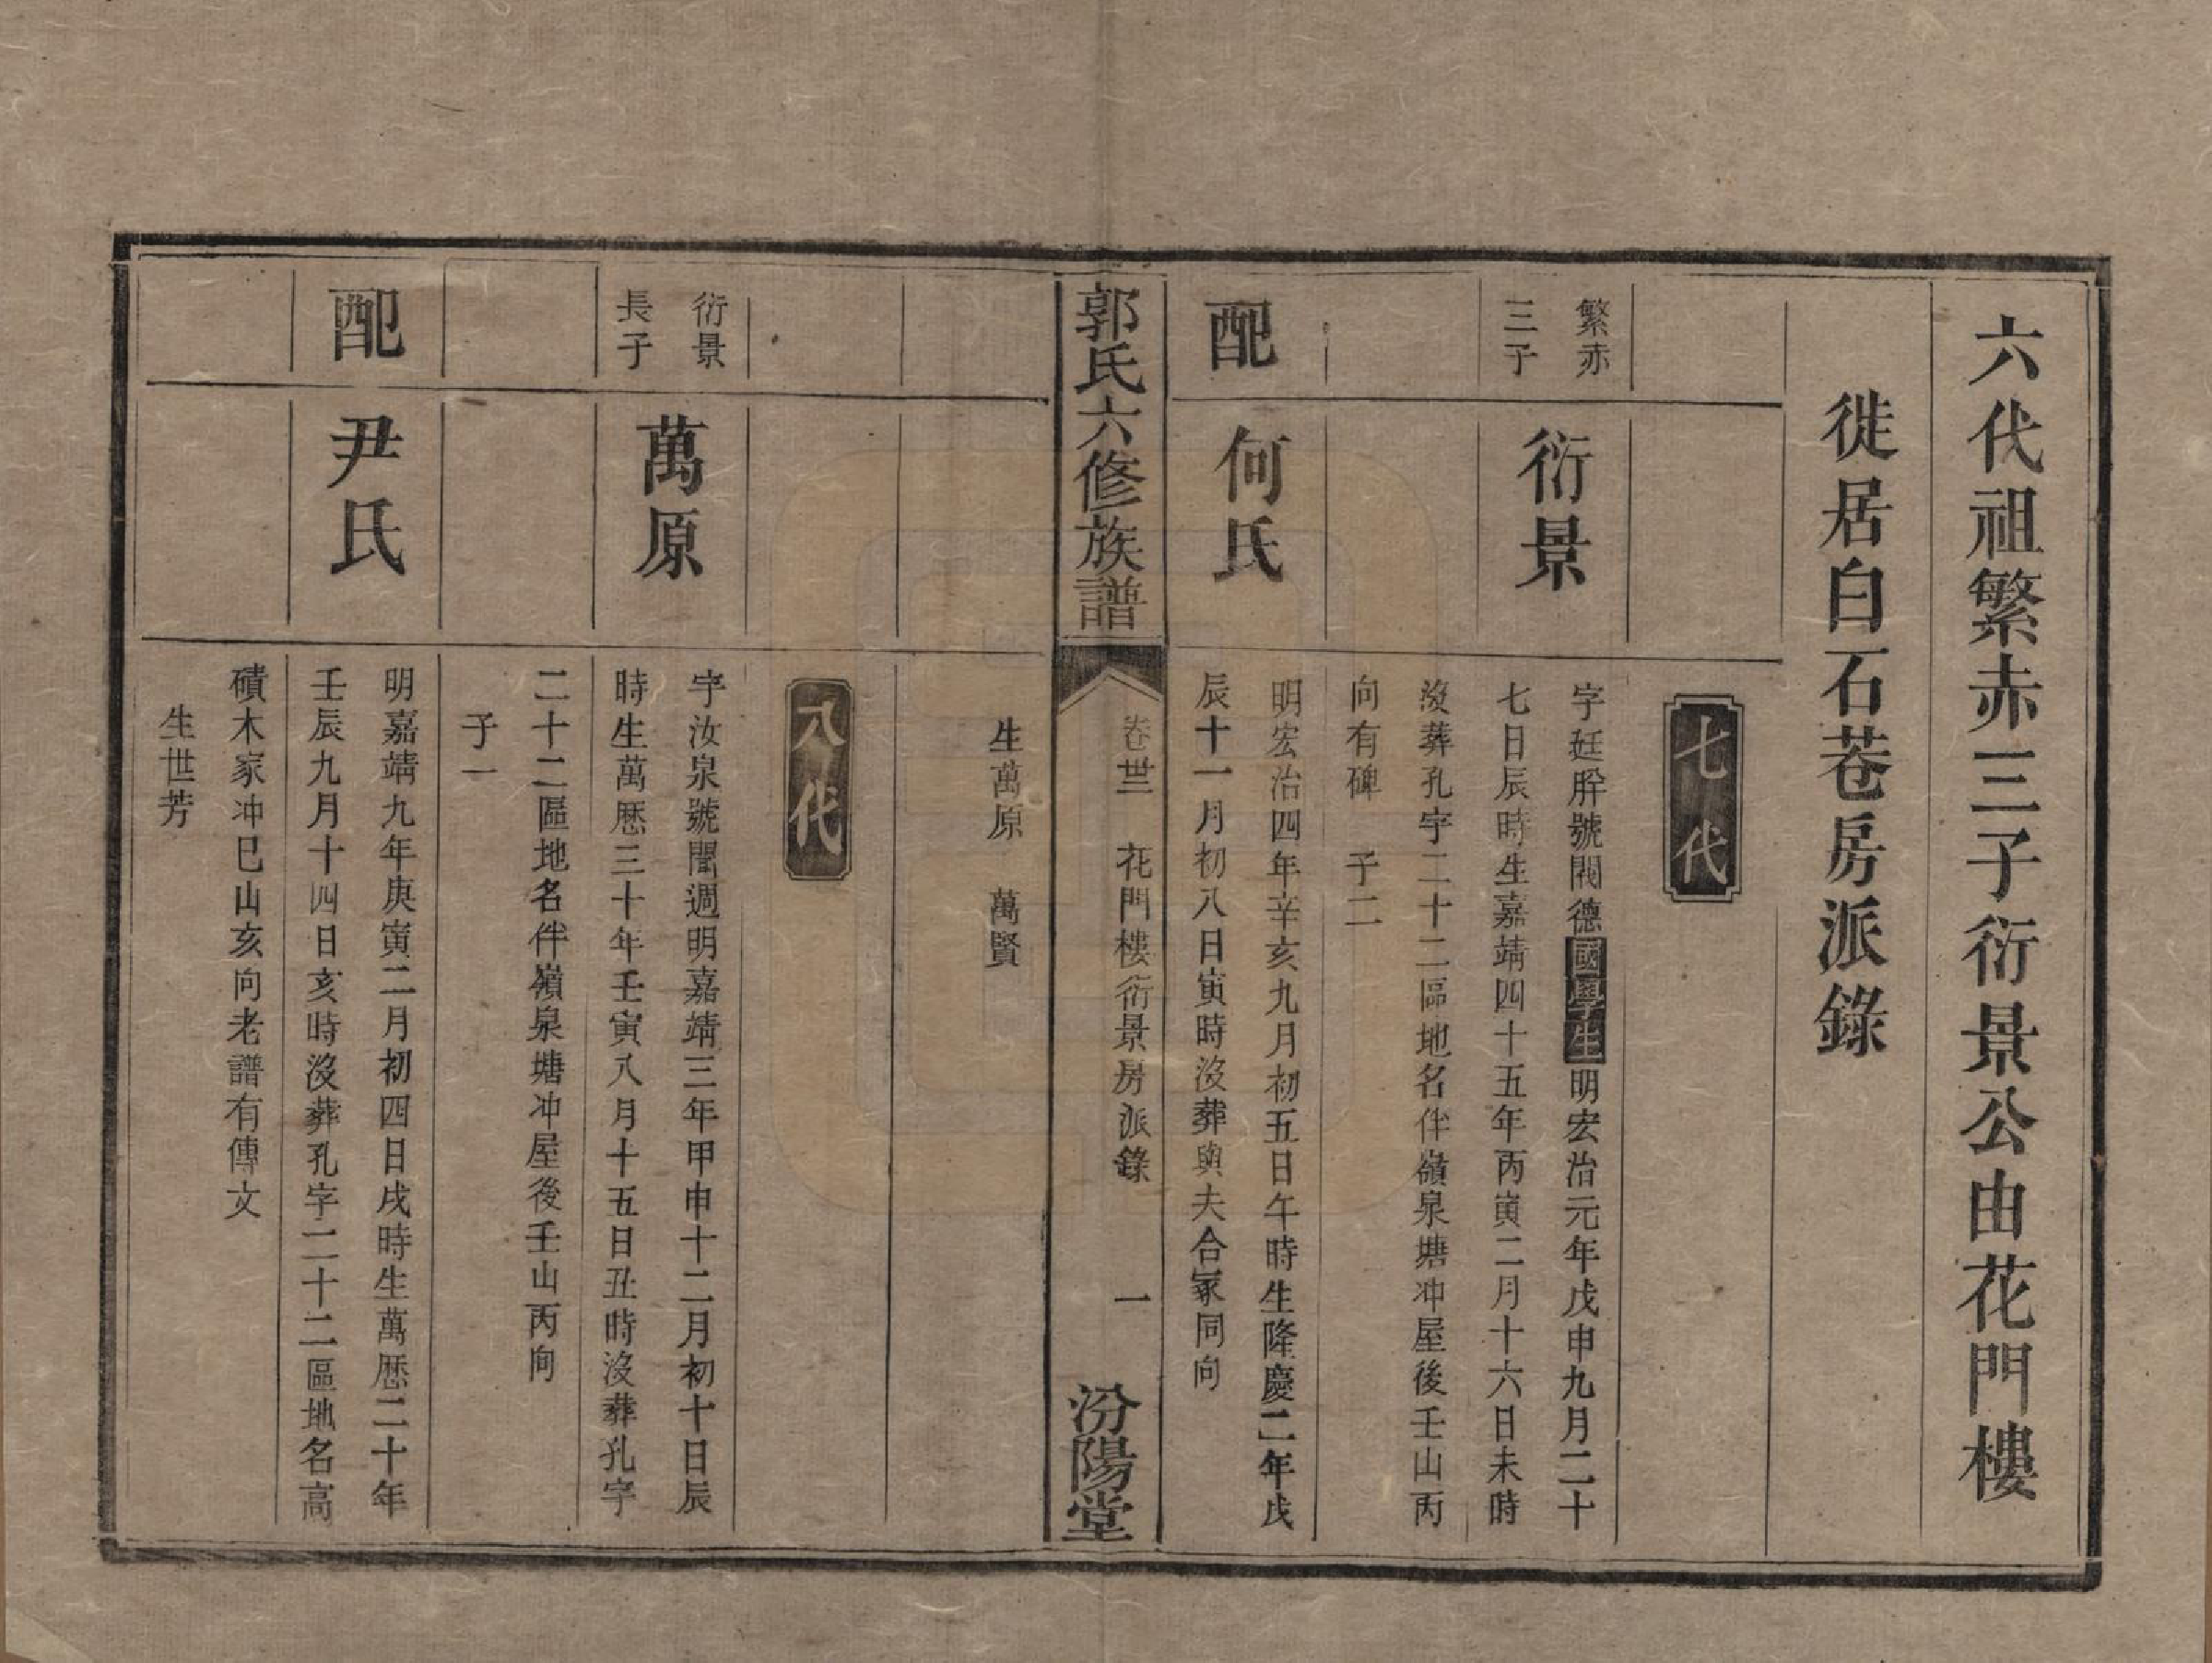 六代祖繁赤三子衍景公由花門樓
徙居白石巷房派錄
七代
繁赤
三子
衍景
字廷胖號閥德國學生明宏治元年戊申九月二十
七日辰時生嘉靖四十五年丙寅二月十六日未時
沒葬孔字二十二區地名伴嶺泉塘冲屋後壬山丙
向有碑 子二
配
何氏
明宏治四年辛亥九月初五日午時生隆慶二年戊
辰十一月初八日寅時沒葬與夫合冢同向
郭氏六修族譜
卷世三 花門樓衍景房派錄 一
汾陽堂
生萬原 萬賢
八代
衍景
長子
萬原
字汝泉號聞週明嘉靖三年甲申十二月初十日辰
時生萬歷三十年壬寅八月十五日丑時沒葬孔字
二十二區地名伴嶺泉塘冲屋後壬山丙向
子一
配
尹氏
明嘉靖九年庚寅二月初四日戌時生萬歷二十年
壬辰九月十四日亥時沒葬孔字二十二區地名高
磧木家冲巳山亥向老譜有傳文
生世芳